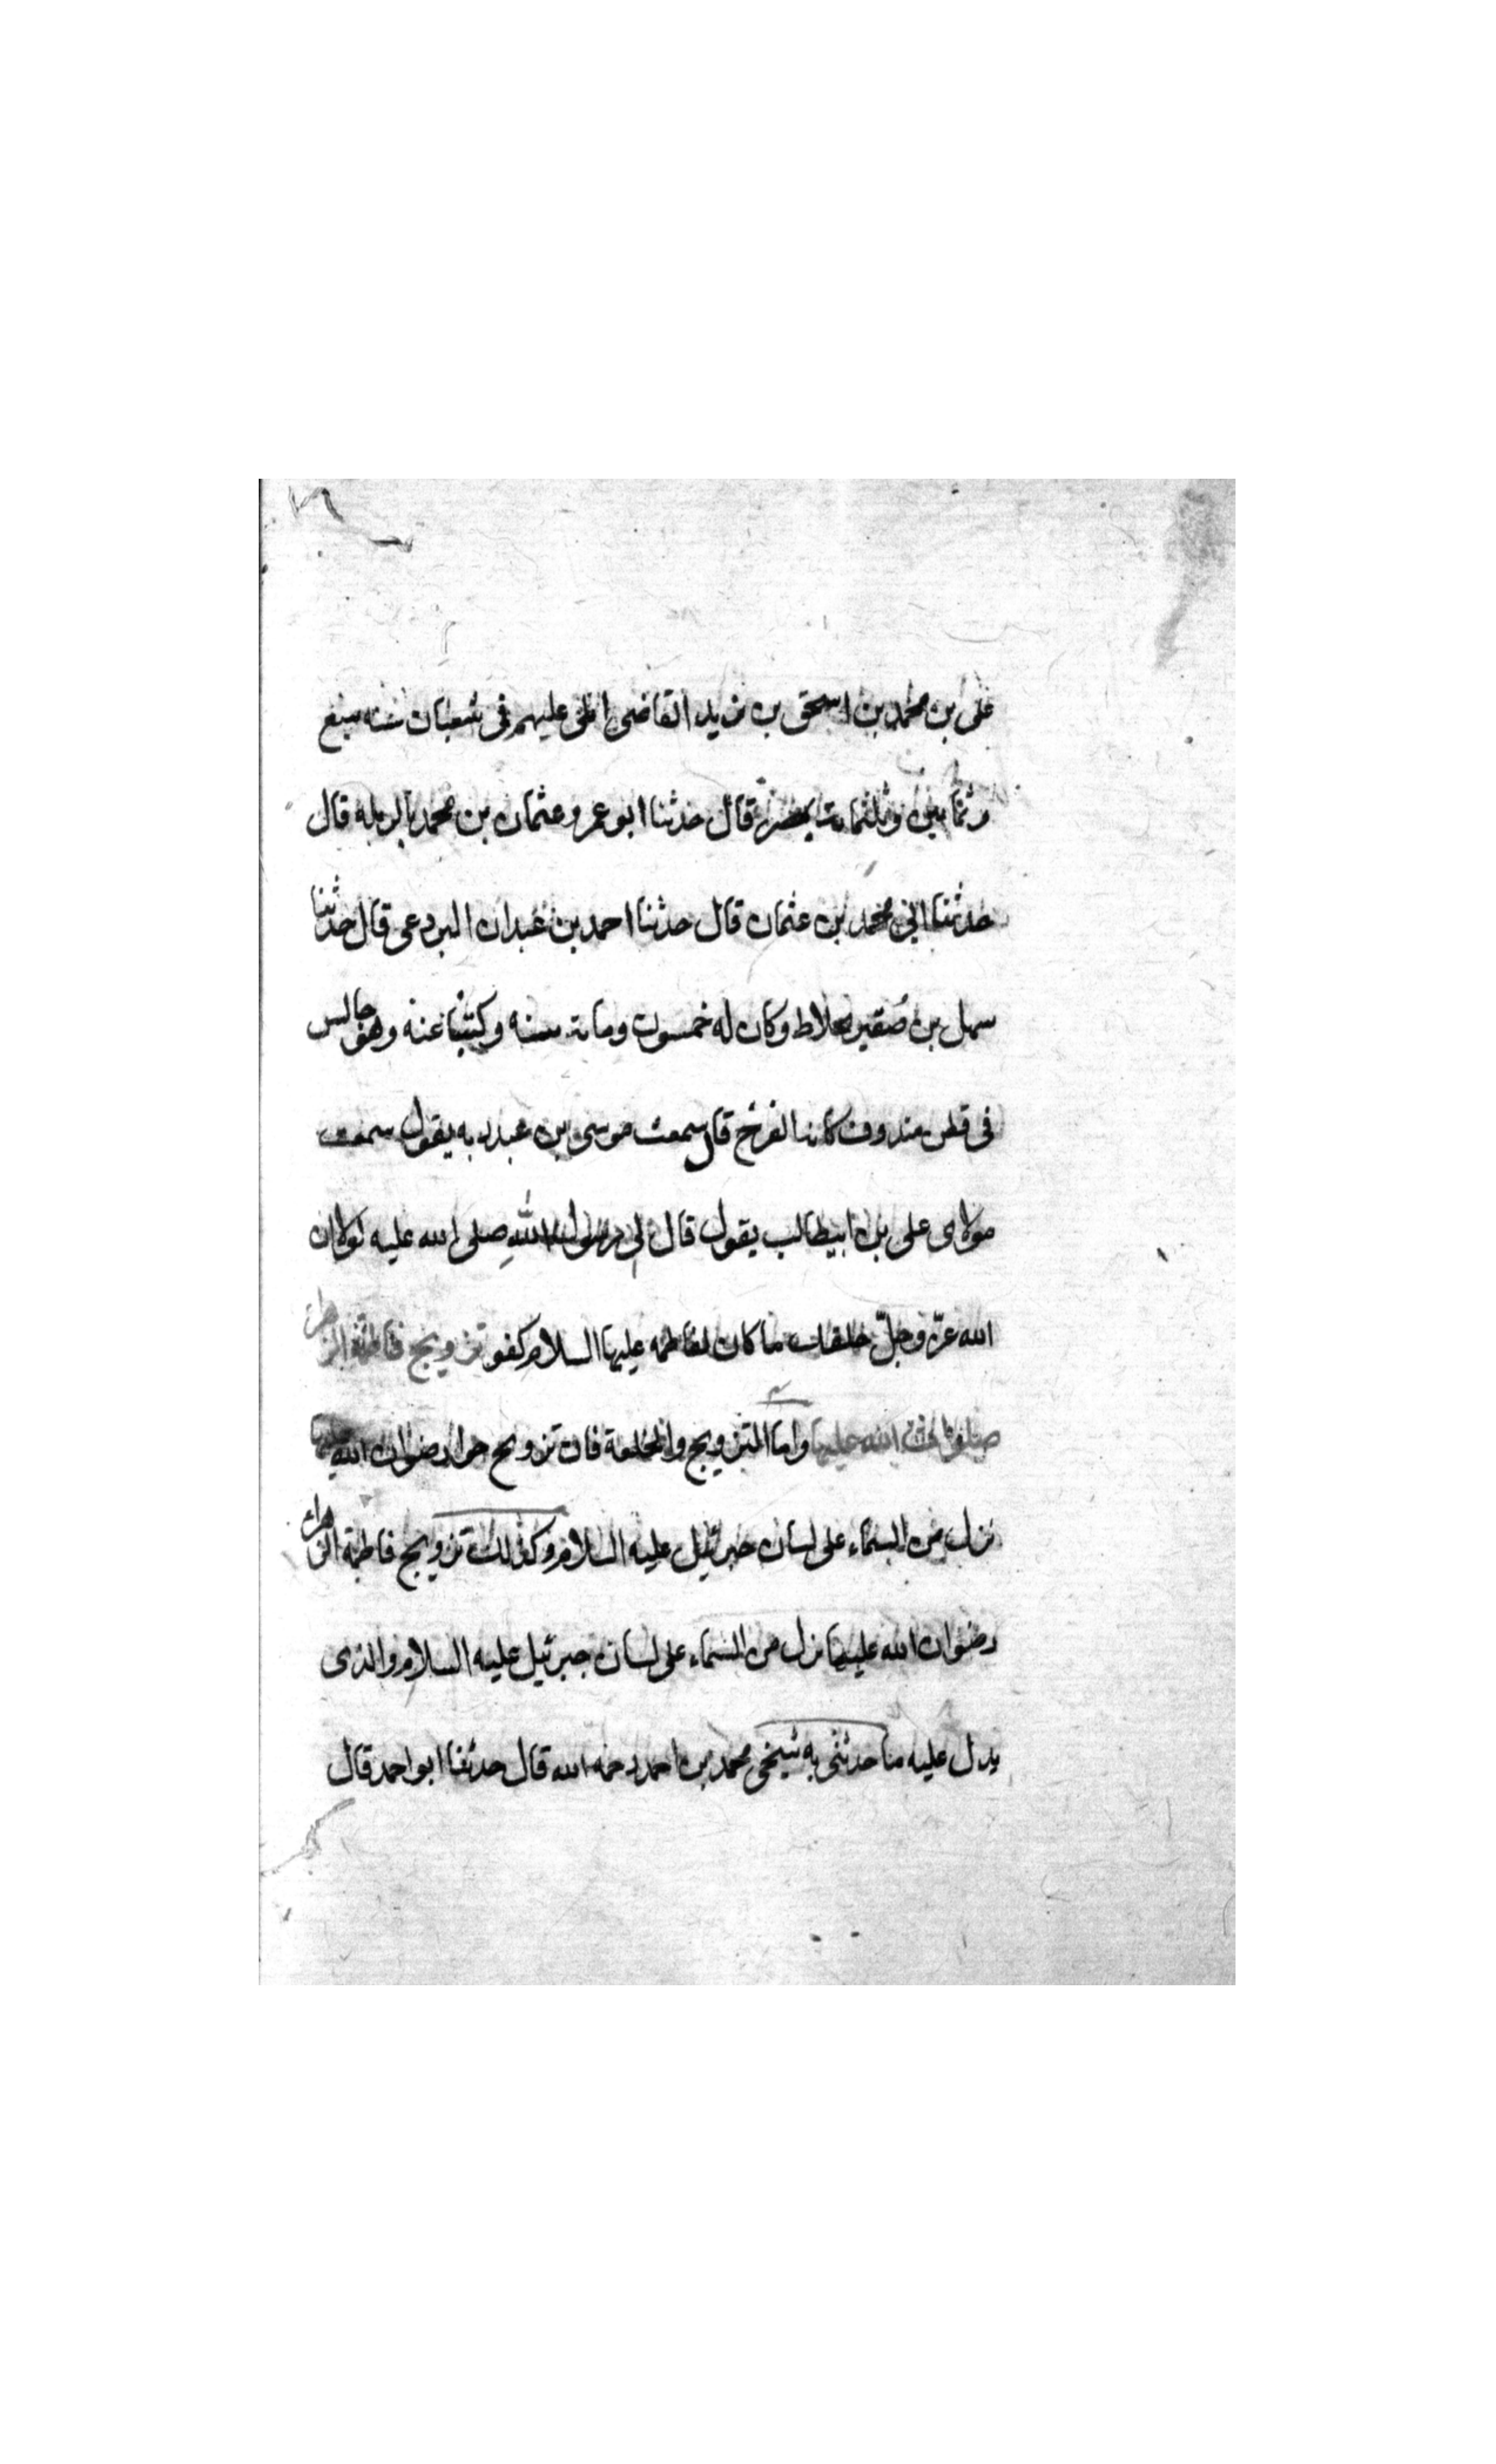 على بن محمد بن اسحق بن يزيد القاضى املى عليهم فى شعبان سنه سبع
وثمانين وثلثمائة بمصر قال حدثنا ابو عمرو عثمان بن محمد بالرمله قال
حدثنا ابى محمد بن عثمان قال حدثنا احمد بن عبدان البردعى قال حدثنا
سهل بن صقير بخلاط وكان له خمسون ومائة سنه وكتبنا عنه وهو جالس
فى قطن مندوف كانه الفرخ قال سمعت موسى بن عبد ربه يقول سمعت
مولاى على بن ابيطالب يقول قال لى رسول الله صلى الله عليه لولا ان
الله عزّ وجلّ خلقك ما كان لفاطمه عليها السلام كفو تزويج فاطمة الزهراء
صلوات الله عليها واما التزويج والخلعة فان تزويج حوا رضوان الله عليها
نزل من السماء على لسان جبرئيل عليه السلام وكذلك تزويج فاطمة الزهراء
رضوان الله عليها نزل من السماء على لسان جبرئيل عليه السلام والذى
يدل عليه ما حدثنى به شيخى محمد بن احمد رحمه الله قال حدثنا ابو احمد قال